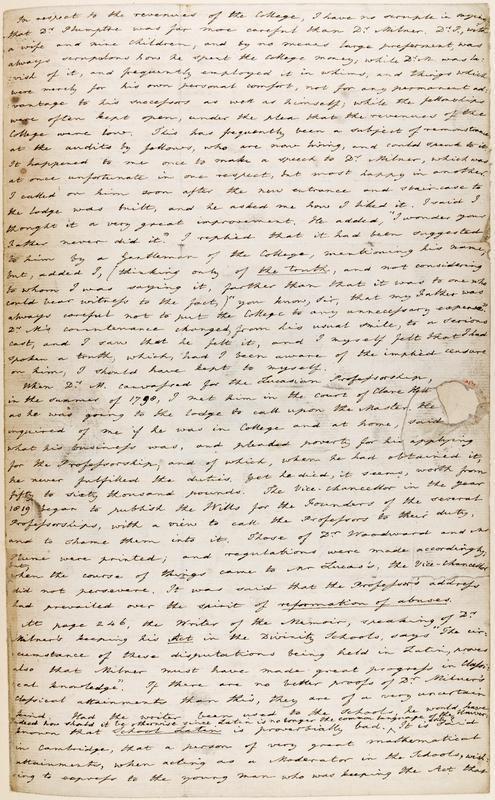 In respect to the revenues of the College, I have no scruple in saying
that Dr. Plumptre was far more careful than Dr. Milner. Dr. P, with
a wife and nine children, and by no means large preferment, was
always scrupulous how he spent the College money; while Dr. M. was la-
vish of it, and frequently employed it in whims, and things which
were merely for his own personal comfort, not for any permanent ad-
vantage to his successors as well as himself; while the fellowships
were often kept open, under the plea that the revenues of the
College were low. This has frequently been a subject of remonstrance
at the audits by fellows, who are now living, and could speak to it.
It happened to me once to make a speech to Dr. Milner, which was
at once unfortunate in one respect, but most happy in another.
I called on him soon after the new entrance and staircase to
the lodge was built, and he asked me how I liked it. I said I
thought it a very great improvement. He added, "I wonder your
Father never did it." I replied that it had been suggested
to him by a Gentleman of the College, mentioning his name;
but, added I, (thinking only of the truth, and not considering
to whom I was saying it, farther than that it was to one who
could bear witness to the fact,) "you know, Sir, that my Father was
always careful not to put the College to any unnecessary expense."
Dr. M's countenance changed, from his usual smile, to a serious
cast, and I saw that he felt it, and I myself felt that I had
spoken a truth, which, had I been aware of the implied censure
on him, I should have kept to myself.
When Dr. M. canvassed for the Lucasian Professorship,
in the summer of 1798, I met him in the court of Clare Hall
as he was going to the lodge to call upon the Master. He
enquired of me if he was in College and at home, said
what his business was, and pleaded poverty for his applying
for the Professorship; and of which, when he had obtained it,
he never fulfilled the duties. Yet he died, it seems, worth from
fifty to sixty thousand pounds. The Vice-Chancellor in the year
1819 began to publish the Wills for the Founders of the several
Professorships, with a view to call the Professors to their duty,
and to shame them into it. Those of Dr. Woodward and Mr
Plume were printed; and regulations were made accordingly,
but when the course of things came to Mr Lucas's, the Vice-Chancellor
did not persevere. It was said that the Professor's address
had prevailed over the spirit of reformation of abuses.
At page 246, the Writer of the Memoir, speaking of Dr.
Milner's keeping his Act in the Divinity Schools, says "The cir-
cumstance of these disputations being held in Latin, proves
also that Milner must have made great progress in classi-
cal knowledge". If there are no better proofs of Dr. Milner's
classical attainments than this, they are of a very uncertain
kind. Had the writer been used to the Schools, he would have
known that School Latin is proverbially bad;
how should it be otherwise since Latin is no longer the common language
It is said
in Cambridge, that a person of very great mathematical
attainments, when acting as a Moderator in the Schools, wish-
ing to express to the young man who was keeping the Act that